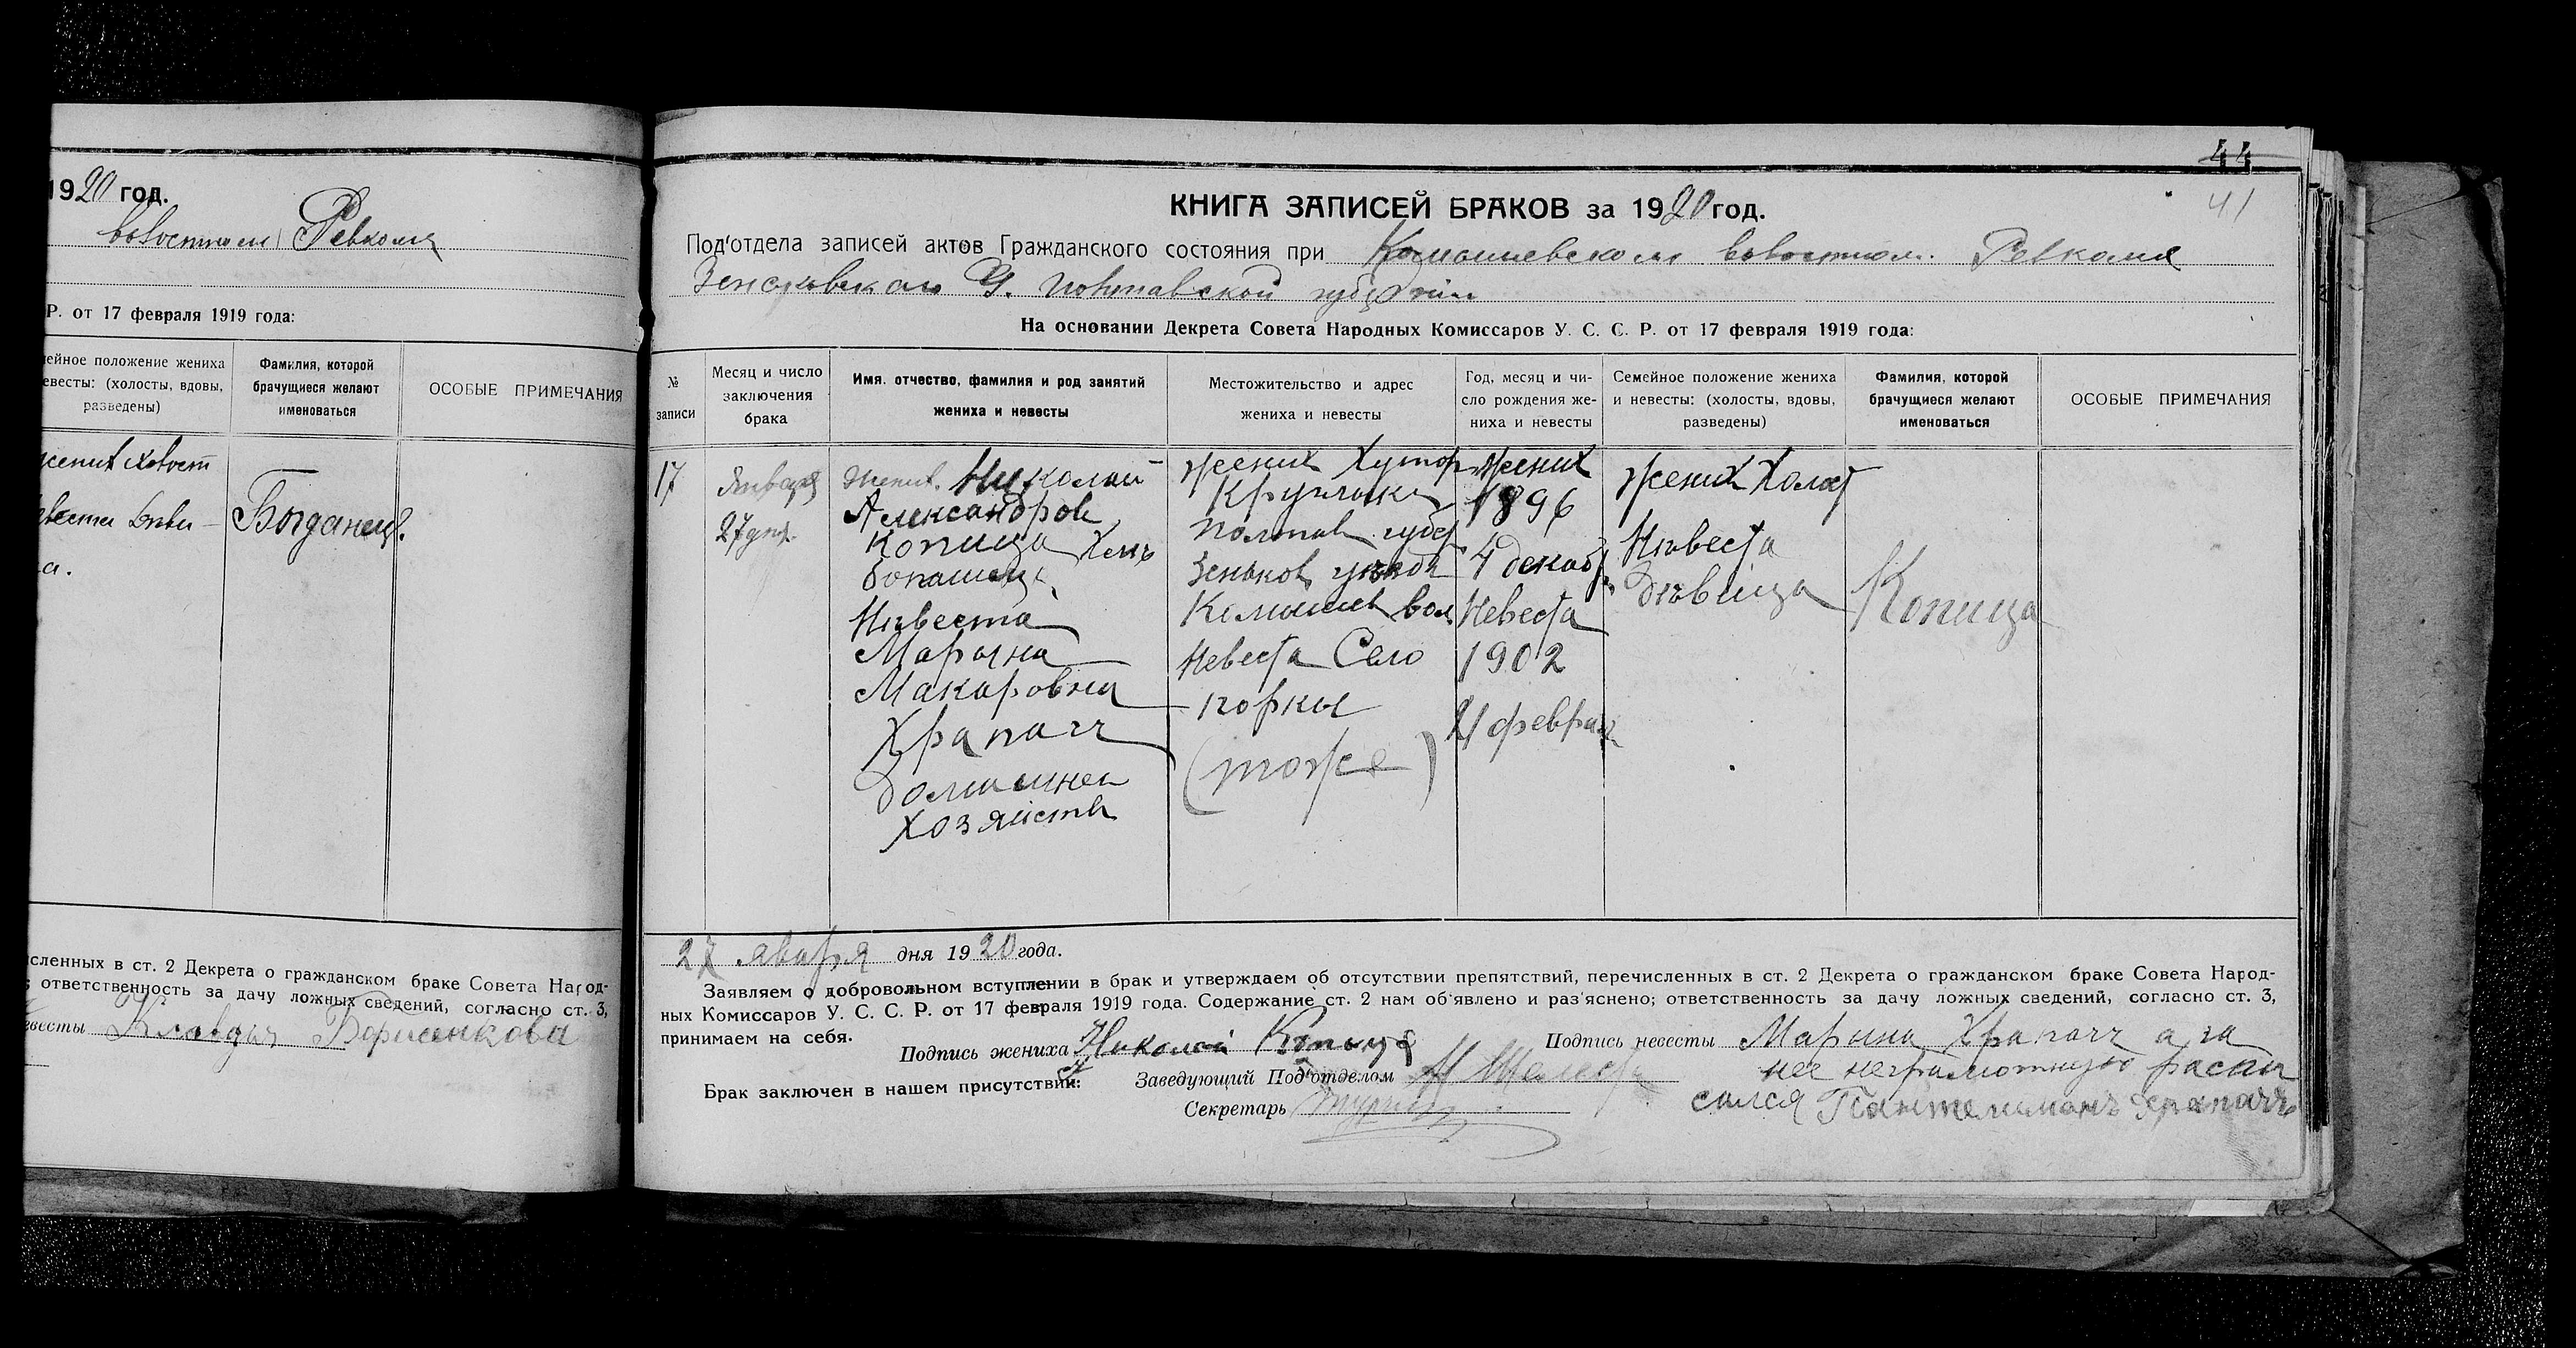 1920 год.
волостном Ревкоме
Р. от 17 февраля 1919 года:
ейное положение жениха
евесты: (холосты, вдовы,
разведены)
Фамилия, которой
брачущиеся желают
именоваться
ОСОБЫЕ ПРИМЕЧАНИЯ
жених холост
Богданец
а.
сленных в ст. 2 Декрета о гражданском браке Совета Народ-
ответственность за дачу ложных сведений, согласно ст. 3,
евесты Клавдия Борисенкова
44
41
КНИГА ЗАПИСЕЙ БРАКОВ за 1920 год.
Под'отдела записей актов Гражданского состояния при Комышевском волостном. Ревкоме
Зеньковского У. Полтавской губернии
На основании Декрета Совета Народных Комиссаров У. С. С. Р. от 17 февраля 1919 года:
№
записи
Месяц и число
заключения
брака
Имя, отчество, фамилия и род занятий
жениха и невесты
Местожительство и адрес
жениха и невесты
Год, месяц и чи-
сло рождения же-
ниха и невесты
Семейное положение жениха
и невесты: (холосты, вдовы,
разведены)
Фамилия, которой
брачущиеся желают
именоваться
ОСОБЫЕ ПРИМЕЧАНИЯ
17
Января
27 дня
жених. Николай
Александров
Копица
Нѣвеста
Марына
Макаровна
Храпачъ
домашнеи
хозяиств
жених Хутор
Кругляки
Полтав губер
Зеньков уѣзда
Комышев вол
Невеста Село
поркы
(тоже)
жених
1896
4 декабр
Невеста
1902
21 феврал
жених Холост
Нѣвеста
дѣвица
Копица
27 января дня 1920 года.
Заявляем о добровольном вступлении в брак и утверждаем об отсутствии препятствий, перечисленных в ст. 2 Декрета о гражданском браке Совета Народ-
ных Комиссаров У. С. С. Р. от 17 февраля 1919 года. Содержание ст. 2 нам об'явлено и раз'яснено; ответственность за дачу ложных сведений, согласно ст. 3,
принимаем на себя.
Подпись жениха Николай Копыца
Подпись невесты Марына Храпачъ а за
нее неграмотную распи
сался Пантелимонъ Храпачъ
Брак заключен в нашем присутствии:
Заведующий Под'отделом
Секретарь